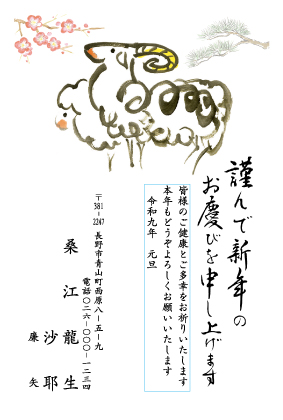 謹んで新年の
お慶びを申し上げます
皆様のご健康とご多幸をお祈りいたします
本年もどうぞよろしくお願いいたします
令和九年 元旦
〒381-2247 長野市青山町西原八-五-九
電話〇二六-〇〇〇-一二三四
桑江 龍生
沙耶
廉矢